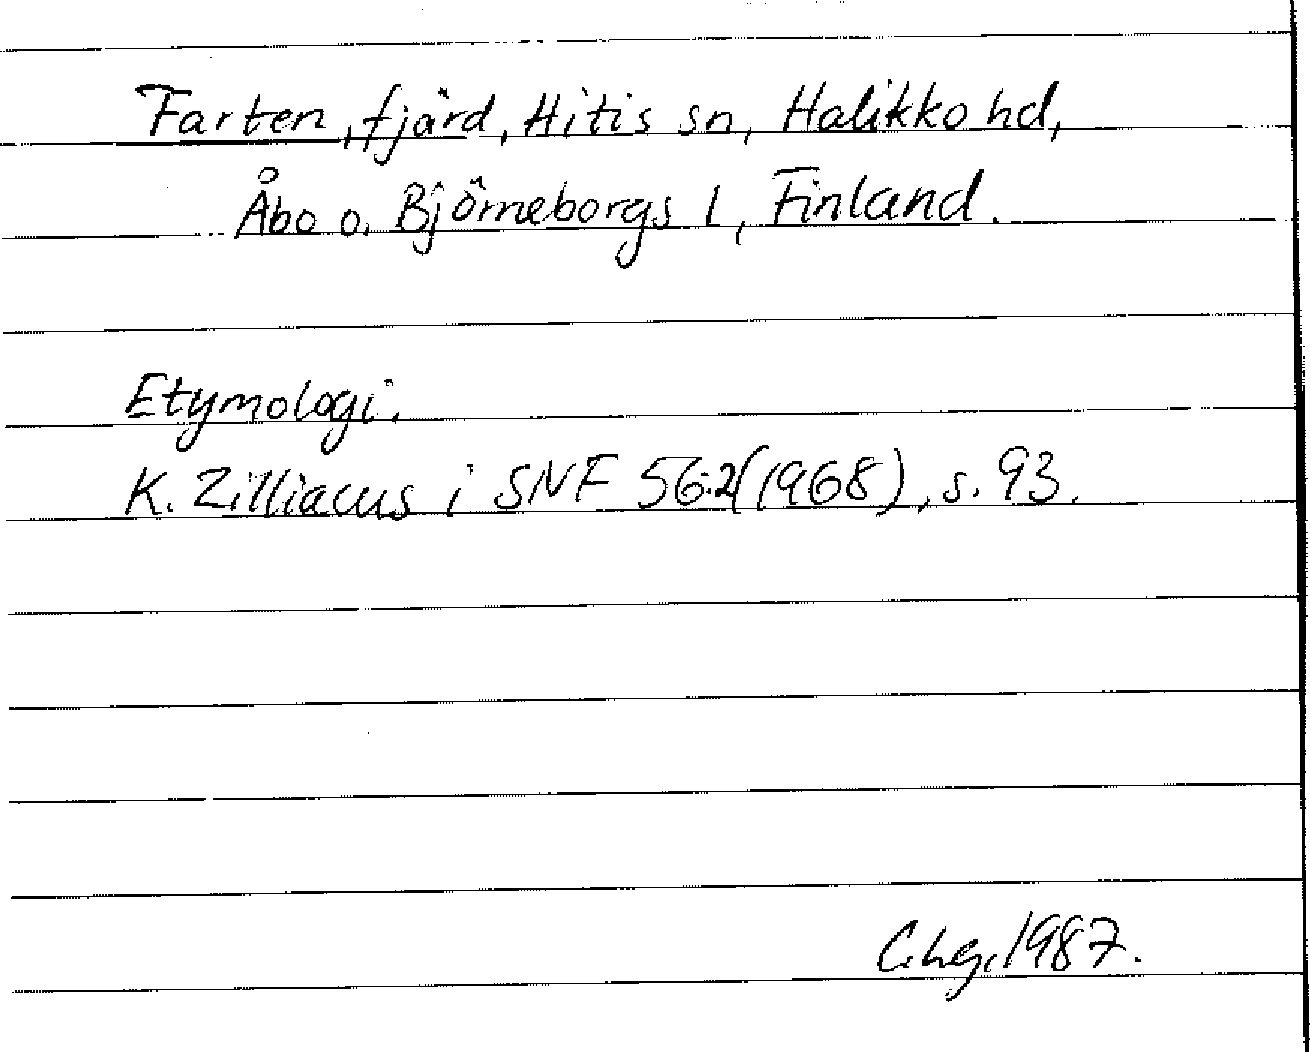 Farten, fjärd, Hitis sn, Halikko hd,
Åbo o. Björneborgs l, Finland.
Etymologi.
K. Zilliacus i SNF 56:2(1968), s. 93.
C.hg. 1987.